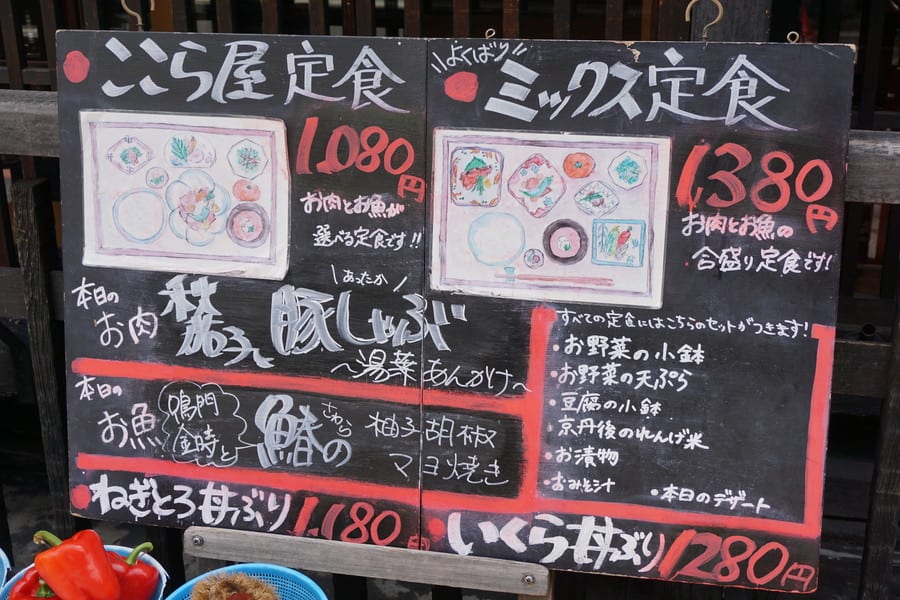 ここら屋定食
1,080円
お肉とお魚が
選べる定食です!!
よくばり
ミックス定食
1,380円
お肉とお魚の
合盛り定食です!
本日の
お肉
茄子と
あったか
豚しゃぶ
～湯葉あんかけ～
本日の
お魚
鳴門
金時と
さわら
鰆の
柚子胡椒
マヨ焼き
すべての定食にはこちらのセットがつきます!
・お野菜の小鉢
・お野菜の天ぷら
・豆腐の小鉢
・京丹後のれんげ米
・お漬物
・おみそ汁
・本日のデザート
ねぎとろ丼ぶり 1,180円
いくら丼ぶり 1280円